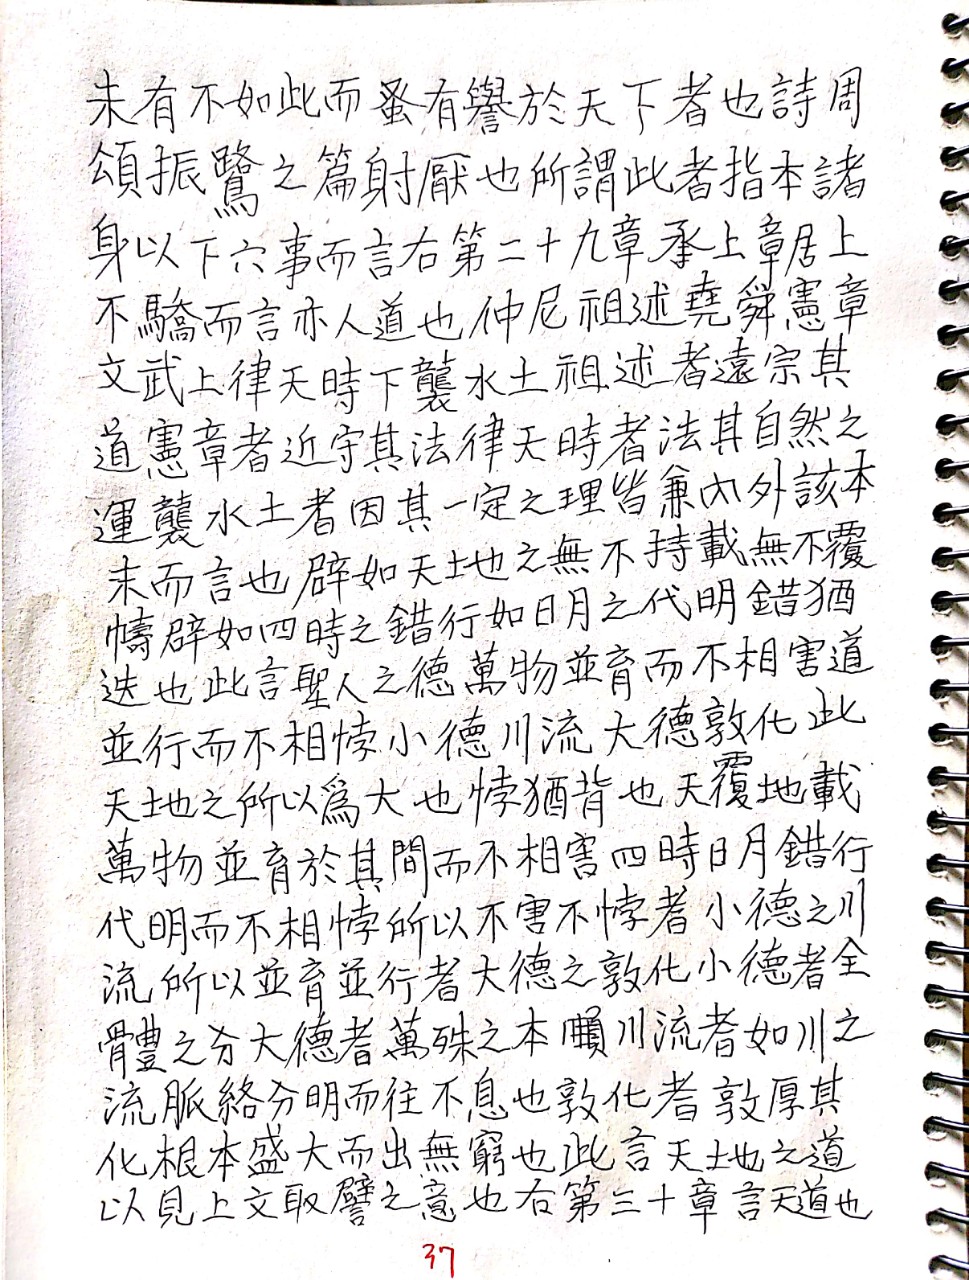 未有不如此而蚤有譽於天下者也詩周
頌振鷺之篇射厭也所謂此者指本諸
身以下六事而言右第二十九章承上章居上
不驕而言亦人道也仲尼祖述堯舜憲章
文武上律天時下襲水土祖述者遠宗其
道憲章者近守其法律天時者法其自然之
運襲水土者因其一定之理皆兼內外該本
末而言也辟如天地之無不持載無不覆
幬辟如四時之錯行如日月之代明錯猶
迭也此言聖人之德萬物並育而不相害道
並行而不相悖小德川流大德敦化此
天地之所以為大也悖猶背也天覆地載
萬物並育於其間而不相害四時日月錯行
代明而不相悖所以不害不悖者小德之川
流所以並育並行者大德之敦化小德者全
體之分大德者萬殊之本川流者如川之
流脈絡分明而往不息也敦化者敦厚其
化根本盛大而出無窮也此言天地之道
以見上文取譬之意也右第三十章言天道也
37